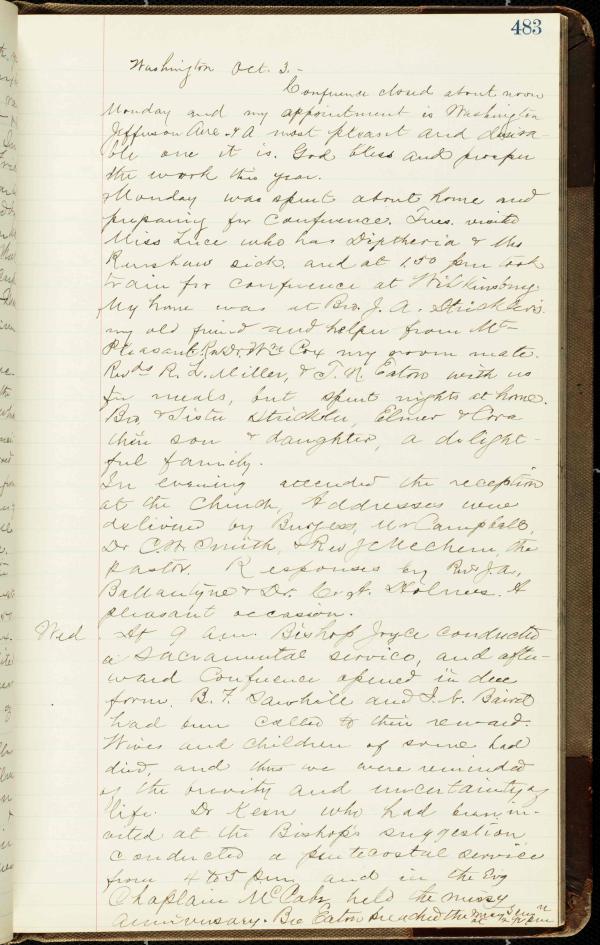 483
Washington Oct. 3.-
Conference closed about noon
Monday and my appointment is Washington
Jefferson Ave. & A most pleasant and desira-
ble one it is. God bless and prosper
the work this year.
Monday was spent about home and
preparing for Conference. Tues. visited
Miss Luce who has Diptheria & Mrs
Renshaw sick. and at 1,50 pm took
train for conference at Wilkinsburg
My home was at Bro. J. A. Strickler's
my old friend and helper from Mt-
Pleasant. Rev Dr. Wm Cox my room mate.
Revds R. L. Miller, & T. N. Eaton with us
for meals, but spent nights at home.
Bro & Sister Strickler, Elmer & Cora
their son & daughter, a delight-
ful family.
In evening attended the reception
at the Church, Addresses were
delivered by Burgess, Mr Campbell,
Dr C W Smith, & Rev J C McChern, the
pastor. Responses by Rev. J. A,
Ballantyne & Dr. C. A. Holmes. A
pleasant occasion.
Wed At 9 a.m. Bishop Joyce conducted
a Sacramental service, and after-
ward Conference opened in due
form. B. F. Sawhill and I. N. Baird
had been called to their reward.
Wives and children of some had
died, and thus we were reminded
of the brevity and uncertainty of
life. Dr Keen who had been in-
vited at the Bishop's suggestion
conducted a pentecostal service
from 4 to 5 p.m. and in the Evg
Chaplain McCabe held the missy
anniversary. Bro Eaton preached the missy